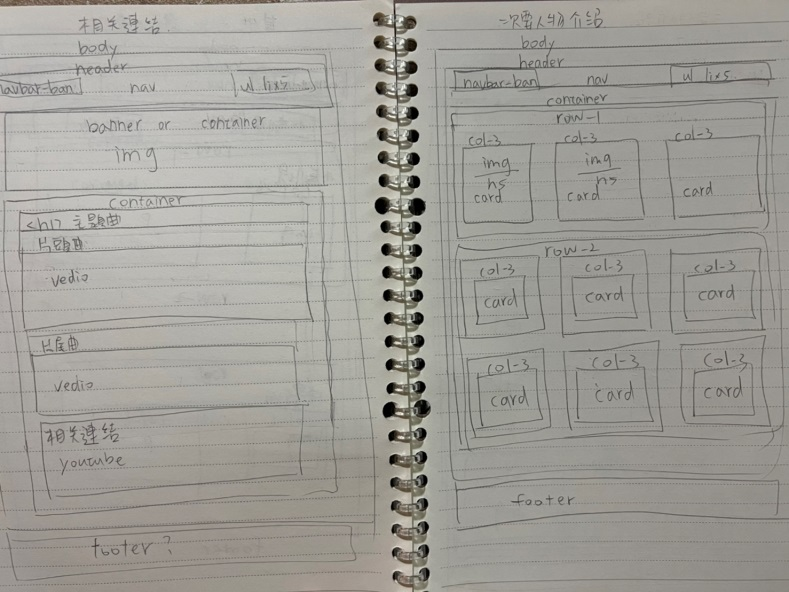 相關連結
body
header
navbar-ban nav ul lix5
banner or container
img
container
<h1> 主題曲
片頭曲
vedio
片尾曲
vedio
相關連結
youtube
footer?
次要人物介紹
body
header
navbar-ban nav ul lix5
container
row-1
col-3 col-3 col-3
img img
h5 h5
card card card
row-2
col-3 col-3 col-3
card card card
col-3 col-3 col-3
card card card
footer